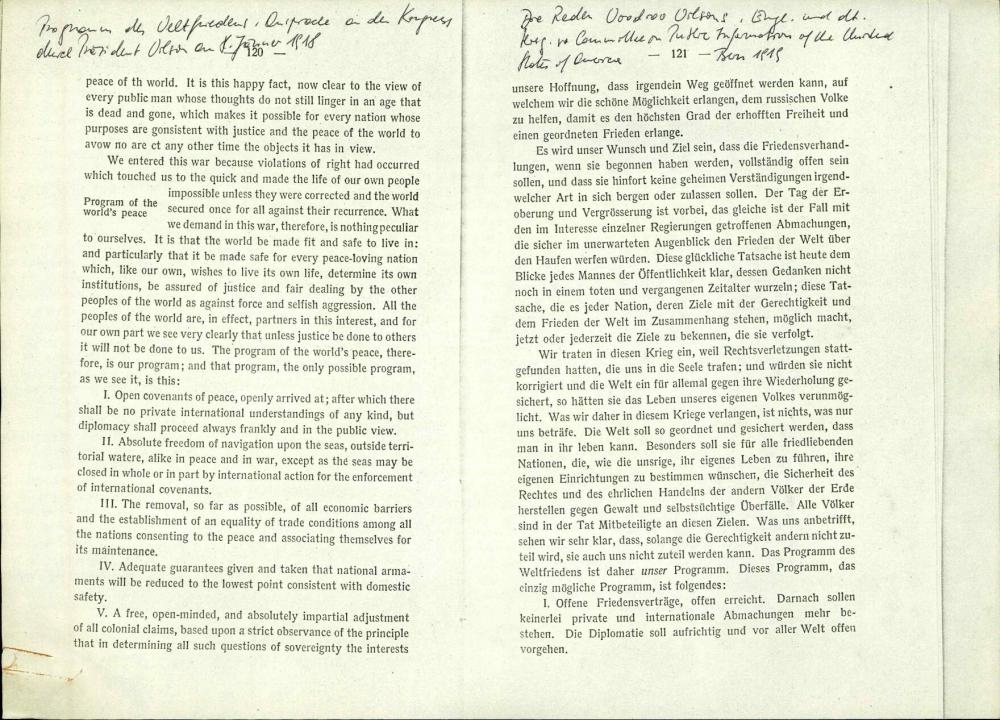 Programm des Weltfriedens, Ansprache an den Kongress
durch Präsident Wilson am 8. Jänner 1918
120 —
peace of th world. It is this happy fact, now clear to the view of
every public man whose thoughts do not still linger in an age that
is dead and gone, which makes it possible for every nation whose
purposes are gonsistent with justice and the peace of the world to
avow no are ct any other time the objects it has in view.
We entered this war because violations of right had occurred
which touched us to the quick and made the life of our own people
impossible unless they were corrected and the world
Program of the
world's peace
secured once for all against their recurrence. What
we demand in this war, therefore, is nothing peculiar
to ourselves. It is that the world be made fit and safe to live in:
and particularly that it be made safe for every peace-loving nation
which, like our own, wishes to live its own life, determine its own
institutions, be assured of justice and fair dealing by the other
peoples of the world as against force and selfish aggression. All the
peoples of the world are, in effect, partners in this interest, and for
our own part we see very clearly that unless justice be done to others
it will not be done to us. The program of the world's peace, there-
fore, is our program; and that program, the only possible program,
as we see it, is this:
I. Open covenants of peace, openly arrived at; after which there
shall be no private international understandings of any kind, but
diplomacy shall proceed always frankly and in the public view.
II. Absolute freedom of navigation upon the seas, outside terri-
torial watere, alike in peace and in war, except as the seas may be
closed in whole or in part by international action for the enforcement
of international covenants.
III. The removal, so far as possible, of all economic barriers
and the establishment of an equality of trade conditions among all
the nations consenting to the peace and associating themselves for
its maintenance.
IV. Adequate guarantees given and taken that national arma-
ments will be reduced to the lowest point consistent with domestic
safety.
V. A free, open-minded, and absolutely impartial adjustment
of all colonial claims, based upon a strict observance of the principle
that in determining all such questions of sovereignty the interests
Reden Woodrow Wilsons, Engl. und dt.
Committee on Public Information of the United
States of America
— 121 — Bern 1919
unsere Hoffnung, dass irgendein Weg geöffnet werden kann, auf
welchem wir die schöne Möglichkeit erlangen, dem russischen Volke
zu helfen, damit es den höchsten Grad der erhofften Freiheit und
einen geordneten Frieden erlange.
Es wird unser Wunsch und Ziel sein, dass die Friedensverhand-
lungen, wenn sie begonnen haben werden, vollständig offen sein
sollen, und dass sie hinfort keine geheimen Verständigungen irgend-
welcher Art in sich bergen oder zulassen sollen. Der Tag der Er-
oberung und Vergrösserung ist vorbei, das gleiche ist der Fall mit
den im Interesse einzelner Regierungen getroffenen Abmachungen,
die sicher im unerwarteten Augenblick den Frieden der Welt über
den Haufen werfen würden. Diese glückliche Tatsache ist heute dem
Blicke jedes Mannes der Öffentlichkeit klar, dessen Gedanken nicht
noch in einem toten und vergangenen Zeitalter wurzeln; diese Tat-
sache, die es jeder Nation, deren Ziele mit der Gerechtigkeit und
dem Frieden der Welt im Zusammenhang stehen, möglich macht,
jetzt oder jederzeit die Ziele zu bekennen, die sie verfolgt.
Wir traten in diesen Krieg ein, weil Rechtsverletzungen statt-
gefunden hatten, die uns in die Seele trafen; und würden sie nicht
korrigiert und die Welt ein für allemal gegen ihre Wiederholung ge-
sichert, so hätten sie das Leben unseres eigenen Volkes verunmög-
licht. Was wir daher in diesem Kriege verlangen, ist nichts, was nur
uns beträfe. Die Welt soll so geordnet und gesichert werden, dass
man in ihr leben kann. Besonders soll sie für alle friedliebenden
Nationen, die, wie die unsrige, ihr eigenes Leben zu führen, ihre
eigenen Einrichtungen zu bestimmen wünschen, die Sicherheit des
Rechtes und des ehrlichen Handelns der andern Völker der Erde
herstellen gegen Gewalt und selbstsüchtige Überfälle. Alle Völker
sind in der Tat Mitbeteiligte an diesen Zielen. Was uns anbetrifft,
sehen wir sehr klar, dass, solange die Gerechtigkeit andern nicht zu-
teil wird, sie auch uns nicht zuteil werden kann. Das Programm des
Weltfriedens ist daher unser Programm. Dieses Programm, das
einzig mögliche Programm, ist folgendes:
I. Offene Friedensverträge, offen erreicht. Darnach sollen
keinerlei private und internationale Abmachungen mehr be-
stehen. Die Diplomatie soll aufrichtig und vor aller Welt offen
vorgehen.